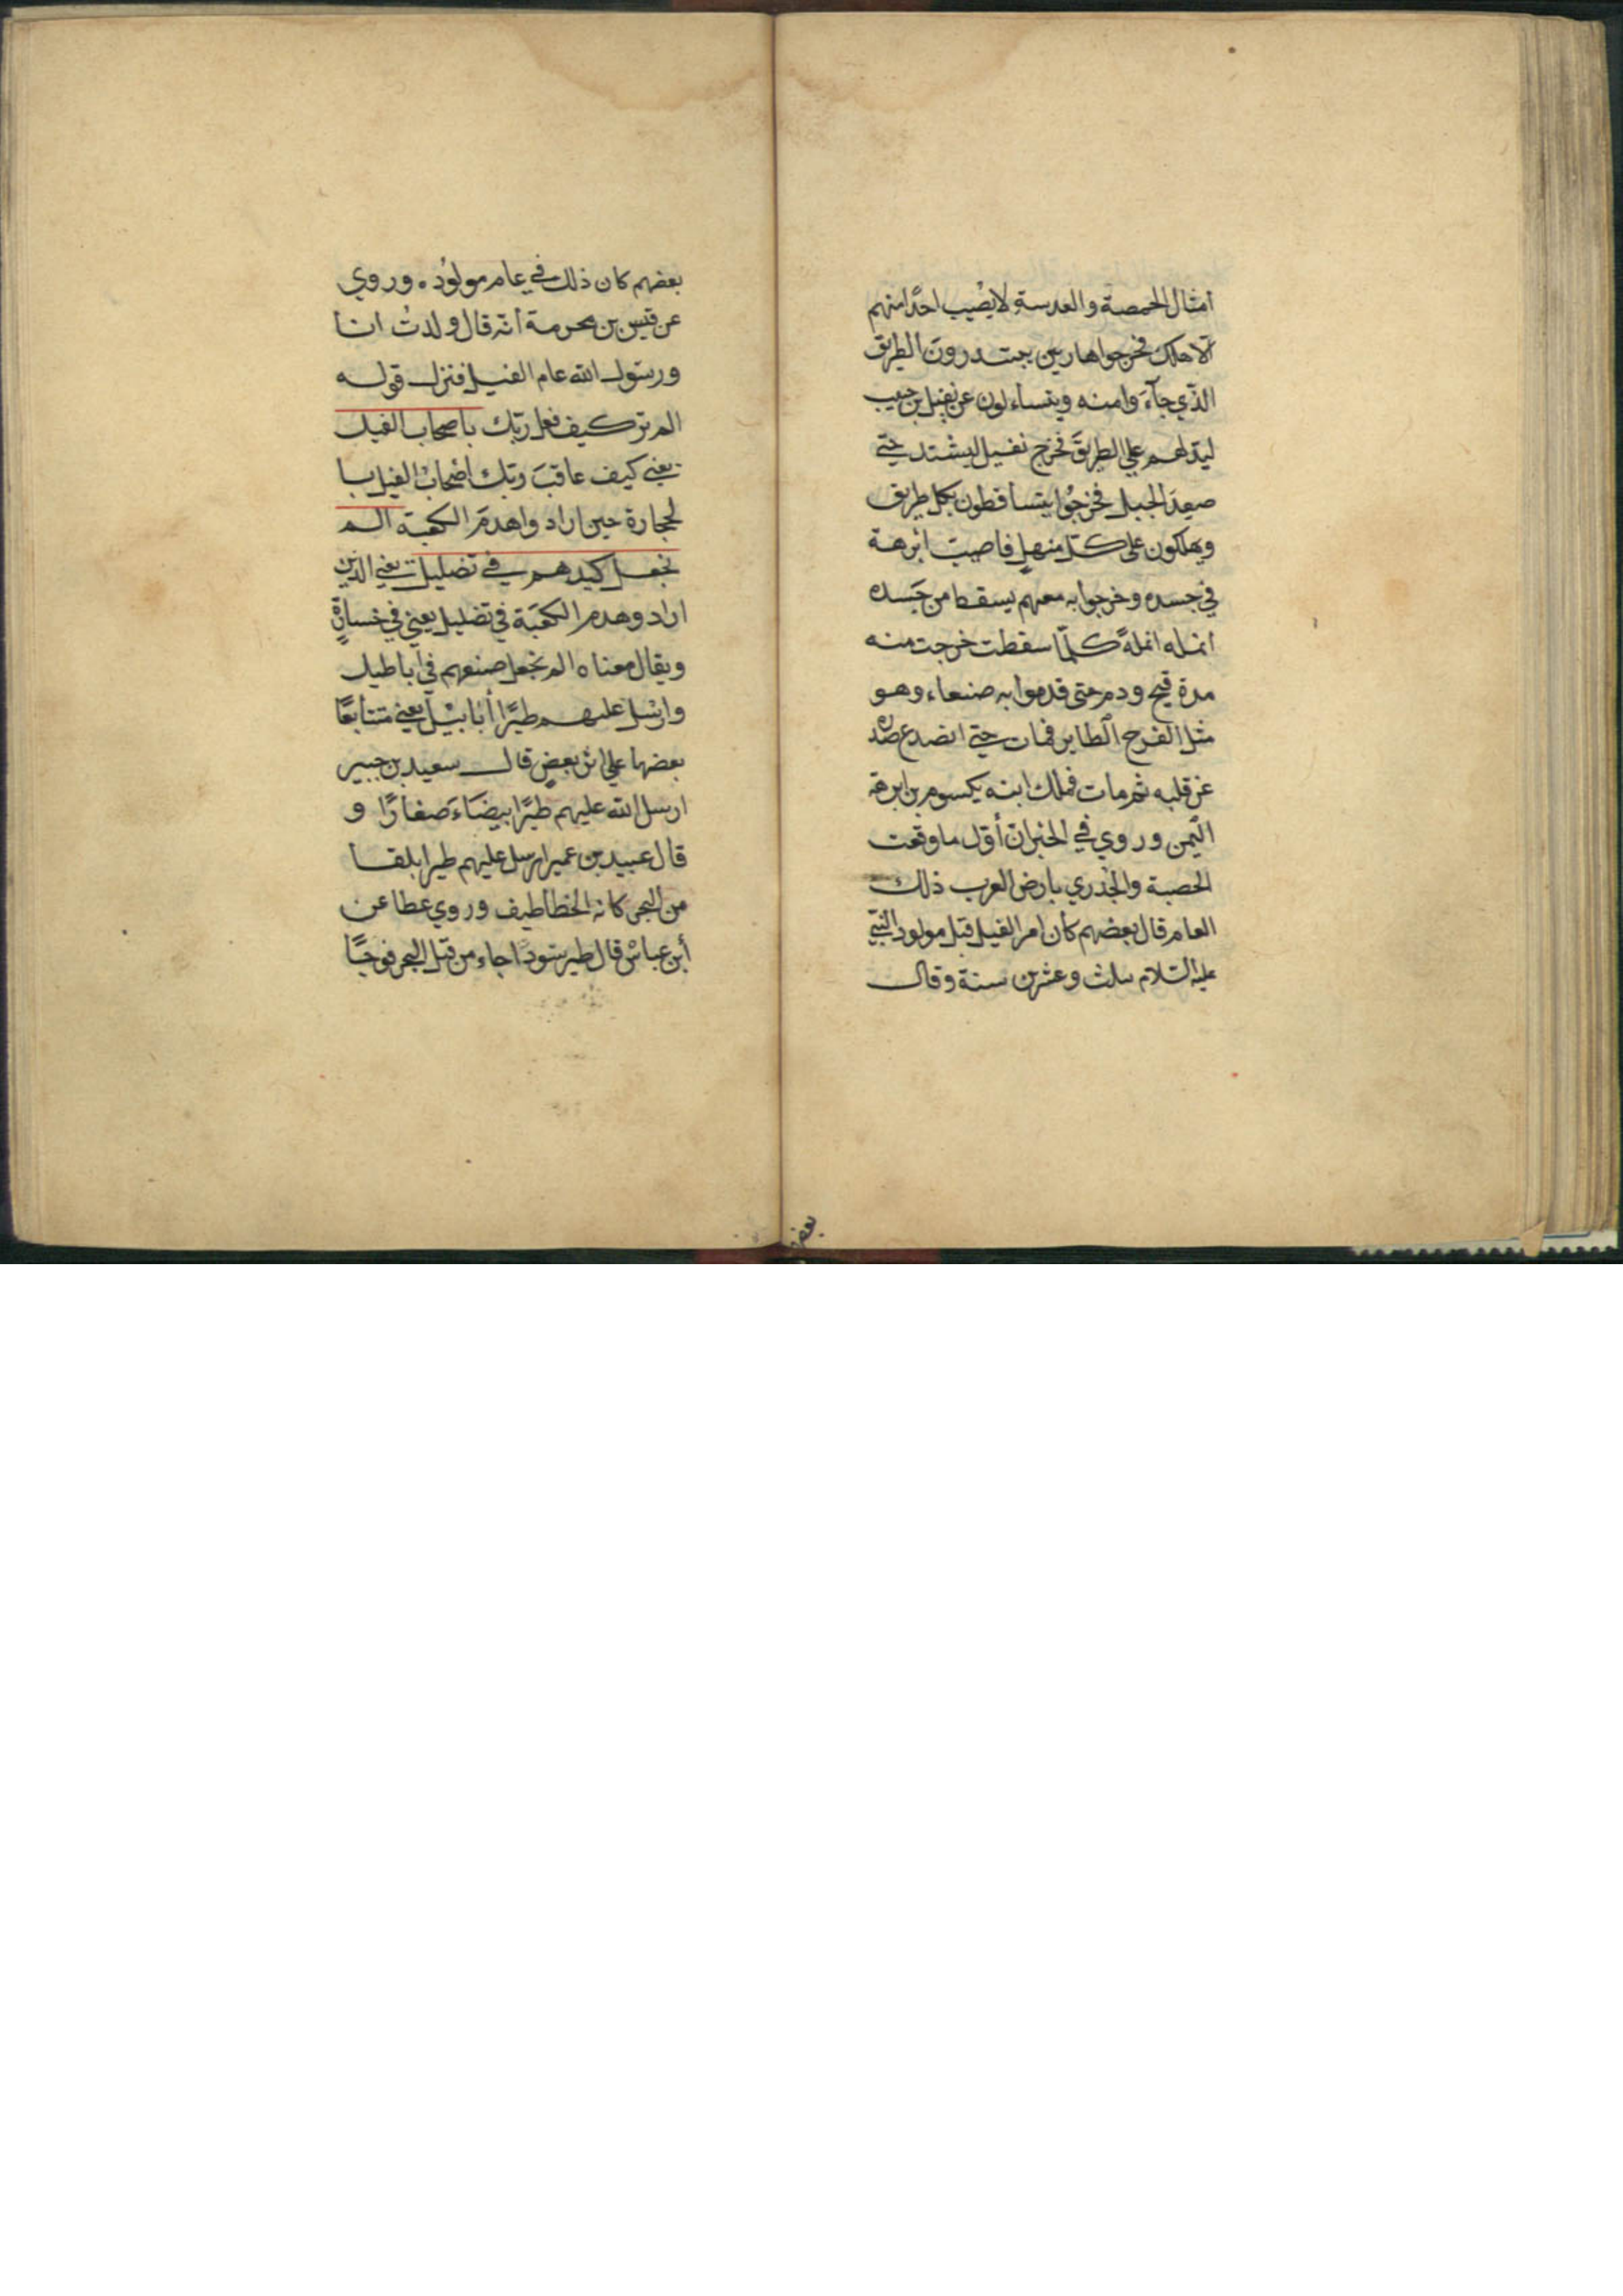 امثال الحمصة والعدسة لا يصيب احدًا منهم
الّا هلك فخرجوا هاربين يبتدرون الطريق
الذي جآءَوا منه ويتساءلون عن نفيل بن حبيب
ليدلهم علي الطريق فخرج نفيل ليشتد حتي
صعِدَ الجبل فخرجُوا يتساقطون بكل طريق
ويهلكون على كل منهل فاصيبت ابرهة
في جسده وخرجوا به معهم يسقط من جَسده
انمله انملةً كلّما سقطت خرجت منه
مدة قيح ودم حتى قدموا به صنعاء وهو
مثل الفرح الطاير فمات حتي انصدع صدره
عن قلبه ثم مات فملك ابنه يكسوم بن ابرهة
اليمن وروي في الخبر ان أول ما وقعت
الحصبة والجُدري بارض العرب ذلك
العام قال بعضهم كان امر الفيل قبل مولود النبي
عليه السّلام بثلث وعشرين سنة وقال
بعض
بعضهم كان ذلك في عام مولوُده وروي
عن قيس بن مخرمة أنّه قال ولدتُ انا
ورسول الله عام الفيل فنزل قوله
الم تر كيف فعل ربّك باصحاب الفيل
يعني كيف عاقبَ ربّك أصْحابُ الفيل با
لحجارة حين اراد واهدمَ الكعبة الم
نجعل كيدهم في تضليل يعني الذين
اراد وهدم الكعبَة في تضليل يعني في خسارةٍ
ويقال معناه الم نجعل صنعهم في اباطيل
وارْسل عليهم طيرًا أبَابيْل يعني متتابعًا
بعضها علي اثر بعضٍ قال سعيد بن جبير
ارسل الله عليهم طيرًا بيضَاءَ صغارًا و
قال عبيد بن عمير ارسل عليهم طيرا بلقا
من البحر كانه الخطاطيف وروي عطا عن
أبن عباسْ قال طير سودًا جاء من قبل البحر فوجًا